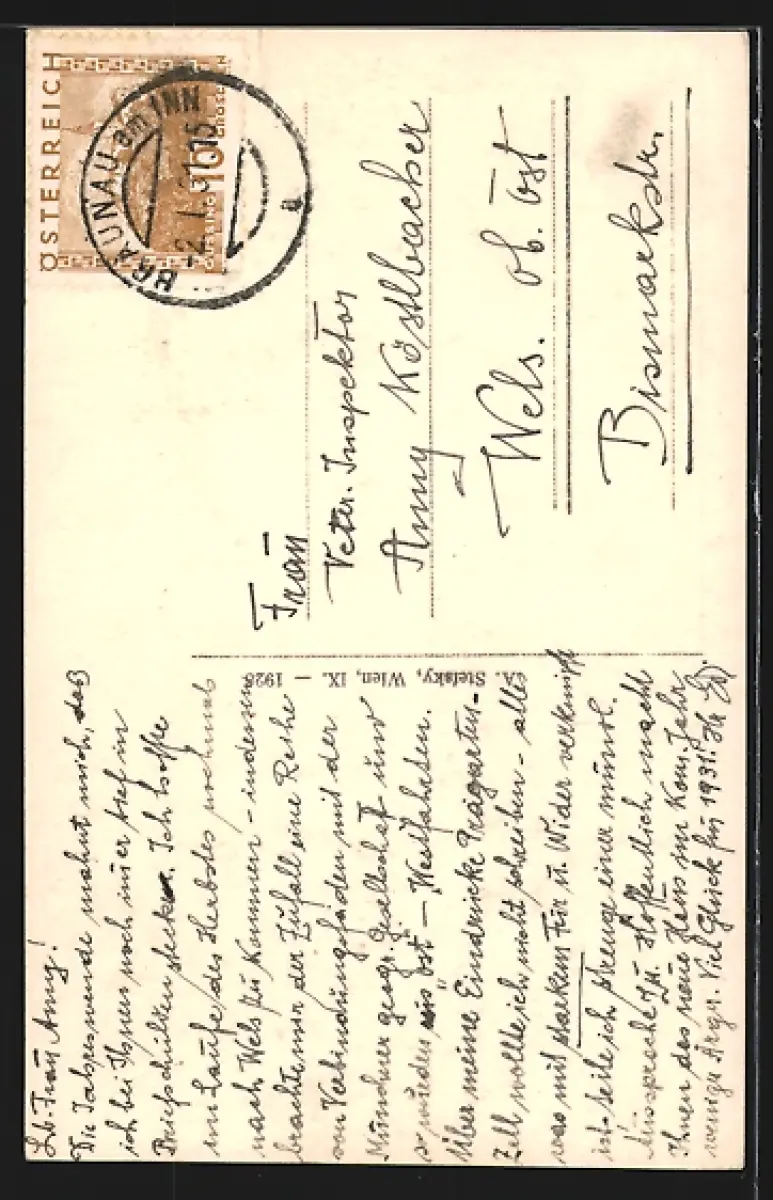 Lb. Frau Amy!
Die Jahreswende mahnt mich, daß
ich bei Ihnen noch immer tief in
Briefschulden stecke. Ich hoffte
im Laufe des Herbstes nochmals
nach Wels zu kommen – indessen
brachte mir der Zufall eine Reihe
von Verbindungsfäden mit der
Münchner geogr. Gesellschaft und
so wurden aus Ost – Westfahrten.
Über meine Eindrücke
Zell wollte ich nicht schreiben – alles
was mit starkem Für u. Wider verknüpft
ist – teile ich einer mündl.
Aussprache zu. Hoffentlich macht
Ihnen das neue Haus im Kom. Jahr
wenige Ärger. Viel Glück für 1931!
A. Stefsky, Wien, IX. – 1928
ÖSTERREICH
10
GROSCHEN
BRAUNAU am INN
Frau
Veter. Inspektor
Amy Köstlbacher
Wels. Ob. Öst
Bismarkstr.